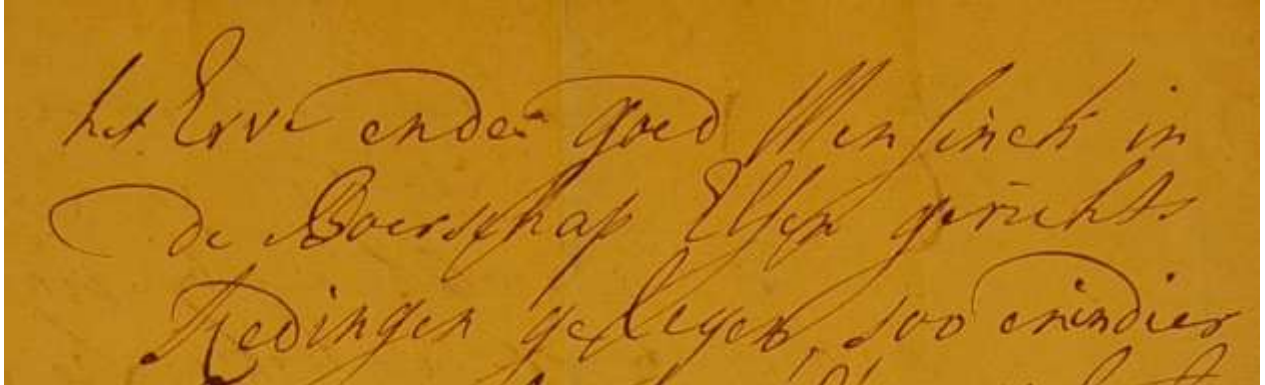 het Erve ende goed Mensinck in
de Boerschap Elsen gerichts
Kedingen gelegen, soo en in dier